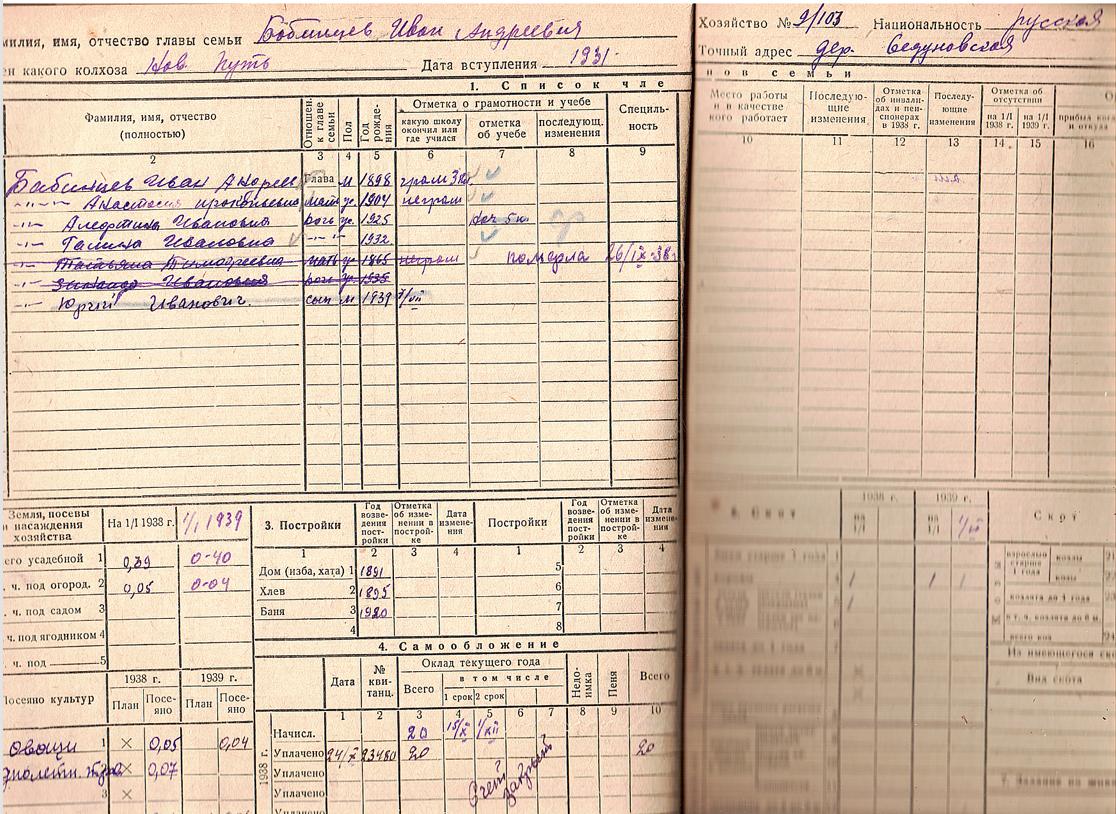 милия, имя, отчество главы семьи Бабинцев Иван Андреевич
ен какого колхоза Нов. Путь Дата вступления 1931
Хозяйство № 9/103 Национальность русская
Точный адрес дер. Седуновская
1. Список чле
нов семьи
Фамилия, имя, отчество (полностью)
Отношен. к главе семьи
Пол
Год рождения
Отметка о грамотности и учебе
какую школу окончил или где учился
отметка об учебе
последующ. изменения
Специль-
ность
Место работы и в качестве кого работает
Последую-
щие изменения
Отметка об инвали-
дах и пен-
сионерах в 1938 г.
Последу-
ющие изменения
Отметка об отсутствии
на 1/I 1938 г.
на 1/I 1939 г.
прибыл когда и откуда
2 3 4 5 6 7 8 9
10 11 12 13 14 15 16
Бабинцев Иван Андреев Глава м 1898 грам 3 кл.
-"- Анастасия Прокопьевна ж 1904 неграм
-"- Алефтина Ивановна дочь ж 1925 5 кл.
-"- Галина Ивановна -"- 1932
-"- Татьяна Тимофеевна мать ж 1865 неграм померла 26/IX-38г
-"- Зинаида Ивановна дочь ж 1935
-"- Юрий Иванович. сын м 1939 7/VII
Земля, посевы
и насаждения
хозяйства
На 1/I 1938 г. 1/I 1939
его усадебной 1 0,39 0-40
. ч. под огород. 2 0,05 0-04
. ч. под садом 3
ч. под ягодником 4
. ч. под 5
1938 г. 1939 г.
Посеяно культур План Посе-
яно План Посе-
яно
Овощи 1 × 0,05 0,04
2 × 0,07
3 ×
3. Постройки
Год возве-
дения пост-
ройки
Отметка об изме-
нении в построй-
ке
Дата измене-
ния
Постройки
Год возве-
дения по-
стройки
Отметка об из-
менении в построй-
ке
Дата измене-
ния
1 2 3 4 1 2 3 4
Дом (изба, хата) 1 1891 5
Хлев 2 1895 6
Баня 3 1920 7
4 8
4. Самообложение
Дата
№ кви-
танц.
Оклад текущего года
Всего
в том числе
1 срок 2 срок
Недо-
имка
Пеня
Всего
1 2 3 4 5 6 7 8 9 10
1938 г.
Начисл. 20 15/X 1/XII
Уплачено 24/X 23480 20 20
Уплачено
Уплачено
Счет закрыт
1938 г. 1939 г.
на 1/I
на 1/I
Скот
взрослые старше 1 года
козлы
козы
Козы
козлята до 1 года
всего коз
На имеющегося ско
Вид скота